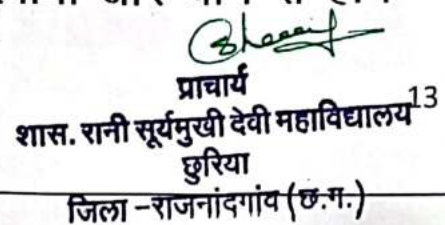 प्राचार्य
शास. रानी सूर्यमुखी देवी महाविद्यालय 13
छुरिया
जिला -राजनांदगांव (छ.ग.)